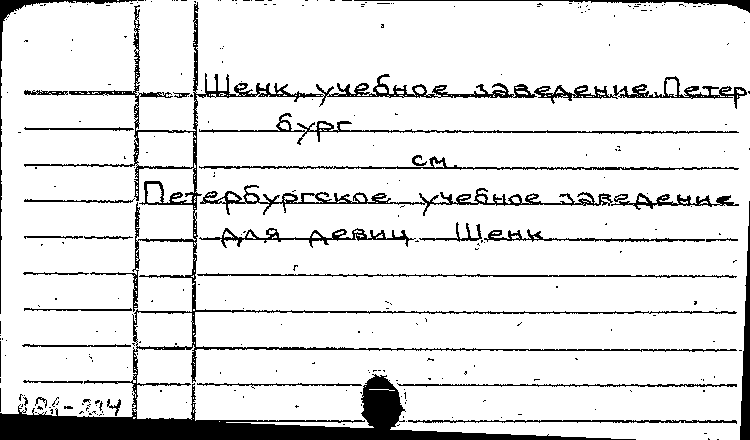 Шенк, учебное заведение. Петер-
бург
см.
Петербургское учебное заведение
для девиц Шенк